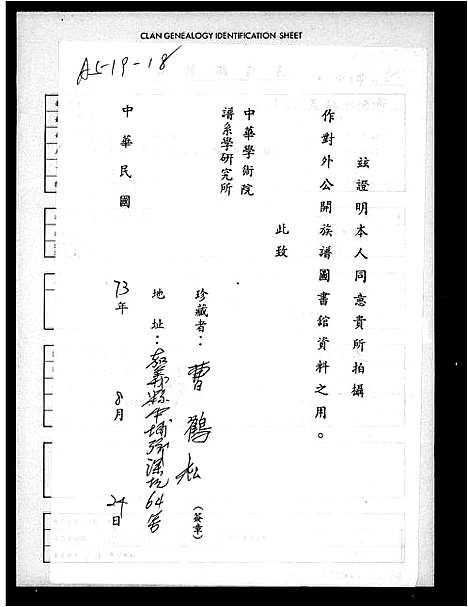 CLAN GENEALOGY IDENTIFICATION SHEET
A5-19-18
茲證明本人同意貴所拍攝
作對外公開族譜圖書館資料之用。
此致
中華學術院
譜系學研究所
珍藏者：曹鶴松（簽章）
地址：嘉義縣中埔鄉深坑64號
中華民國73年8月24日